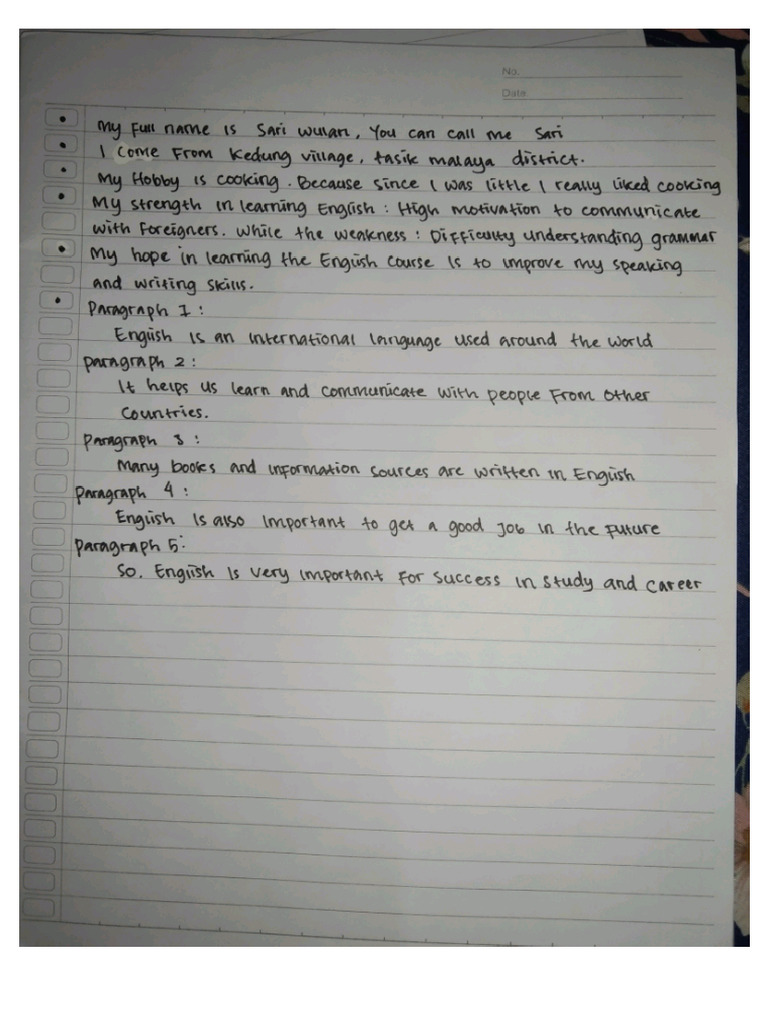 No.
Date.
• My Full name is Sari wulan, You can call me Sari
• I Come From Kedung village, tasik malaya district.
• My Hobby is cooking. Because since I was little I really liked cooking
• My strength in learning English : High motivation to communicate
with Foreigners. While the weakness : Difficulty understanding grammar
• My hope in learning the English course is to improve my speaking
and writing skills.
• Paragraph 1 :
English is an international language used around the world
paragraph 2 :
It helps us learn and communicate with people From other
Countries.
paragraph 3 :
Many books and information sources are written in English
paragraph 4 :
English is also important to get a good job in the Future
paragraph 5:
So. English is very important For success in study and career